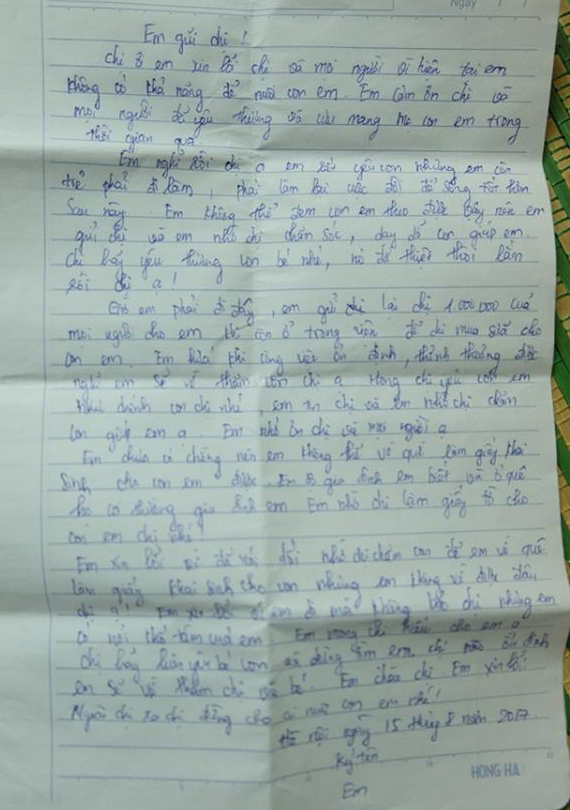 Ngày
Em gửi chị !
Chị ơi em xin lỗi chị và mọi người vì hiện tại em
không có khả năng để nuôi con em. Em cảm ơn chị và
mọi người đã yêu thương và cưu mang mẹ con em trong
thời gian qua
Em nghĩ rồi chị ạ em rất yêu con nhưng em còn
trẻ phải đi làm, phải làm lại cuộc đời để sống tốt hơn
sau này. Em không thể đem con em theo được vậy nên em
gửi chị và em nhờ chị chăm sóc, dạy dỗ con giúp em.
Chị hãy yêu thương con bé nhé, nó đã thiệt thòi lắm
rồi chị ạ !
Giờ em phải đi đây, em gửi lại chị 1.000.000 của
mọi người cho em khi còn ở trong viện để chị mua sữa cho
con em. Em hứa khi công việc ổn định, thỉnh thoảng được
nghỉ em sẽ về thăm con chị ạ. Mong chị yêu con em
như chính con chị nhé, em tin chị và em nhờ chị chăm
con giúp em ạ. Em nhớ ơn chị và mọi người ạ
Em chưa có chồng nên em không thể về quê làm giấy khai
sinh cho con em được. Em sợ gia đình em biết và ở quê
gia đình em. Em nhờ chị làm giấy tờ cho
con em chị nhé !
Em xin lỗi vì đã nói dối nhờ chị chăm con để em về quê
làm giấy khai sinh cho con nhưng em không về được đâu
chị ạ ! Em xin lỗi vì em đi mà không báo chị nhưng em
có nỗi khổ tâm của em. Em mong chị hiểu cho em ạ
Chị hãy yêu bé con và đừng tìm em, chị nào ổn định
em sẽ về thăm chị và bé. Em chào chị. Em xin lỗi.
Ngoài chị ra chị đừng cho ai nuôi con em nhé !
Hà Nội ngày 15 tháng 8 năm 2017
Ký tên
Em
HONG HA